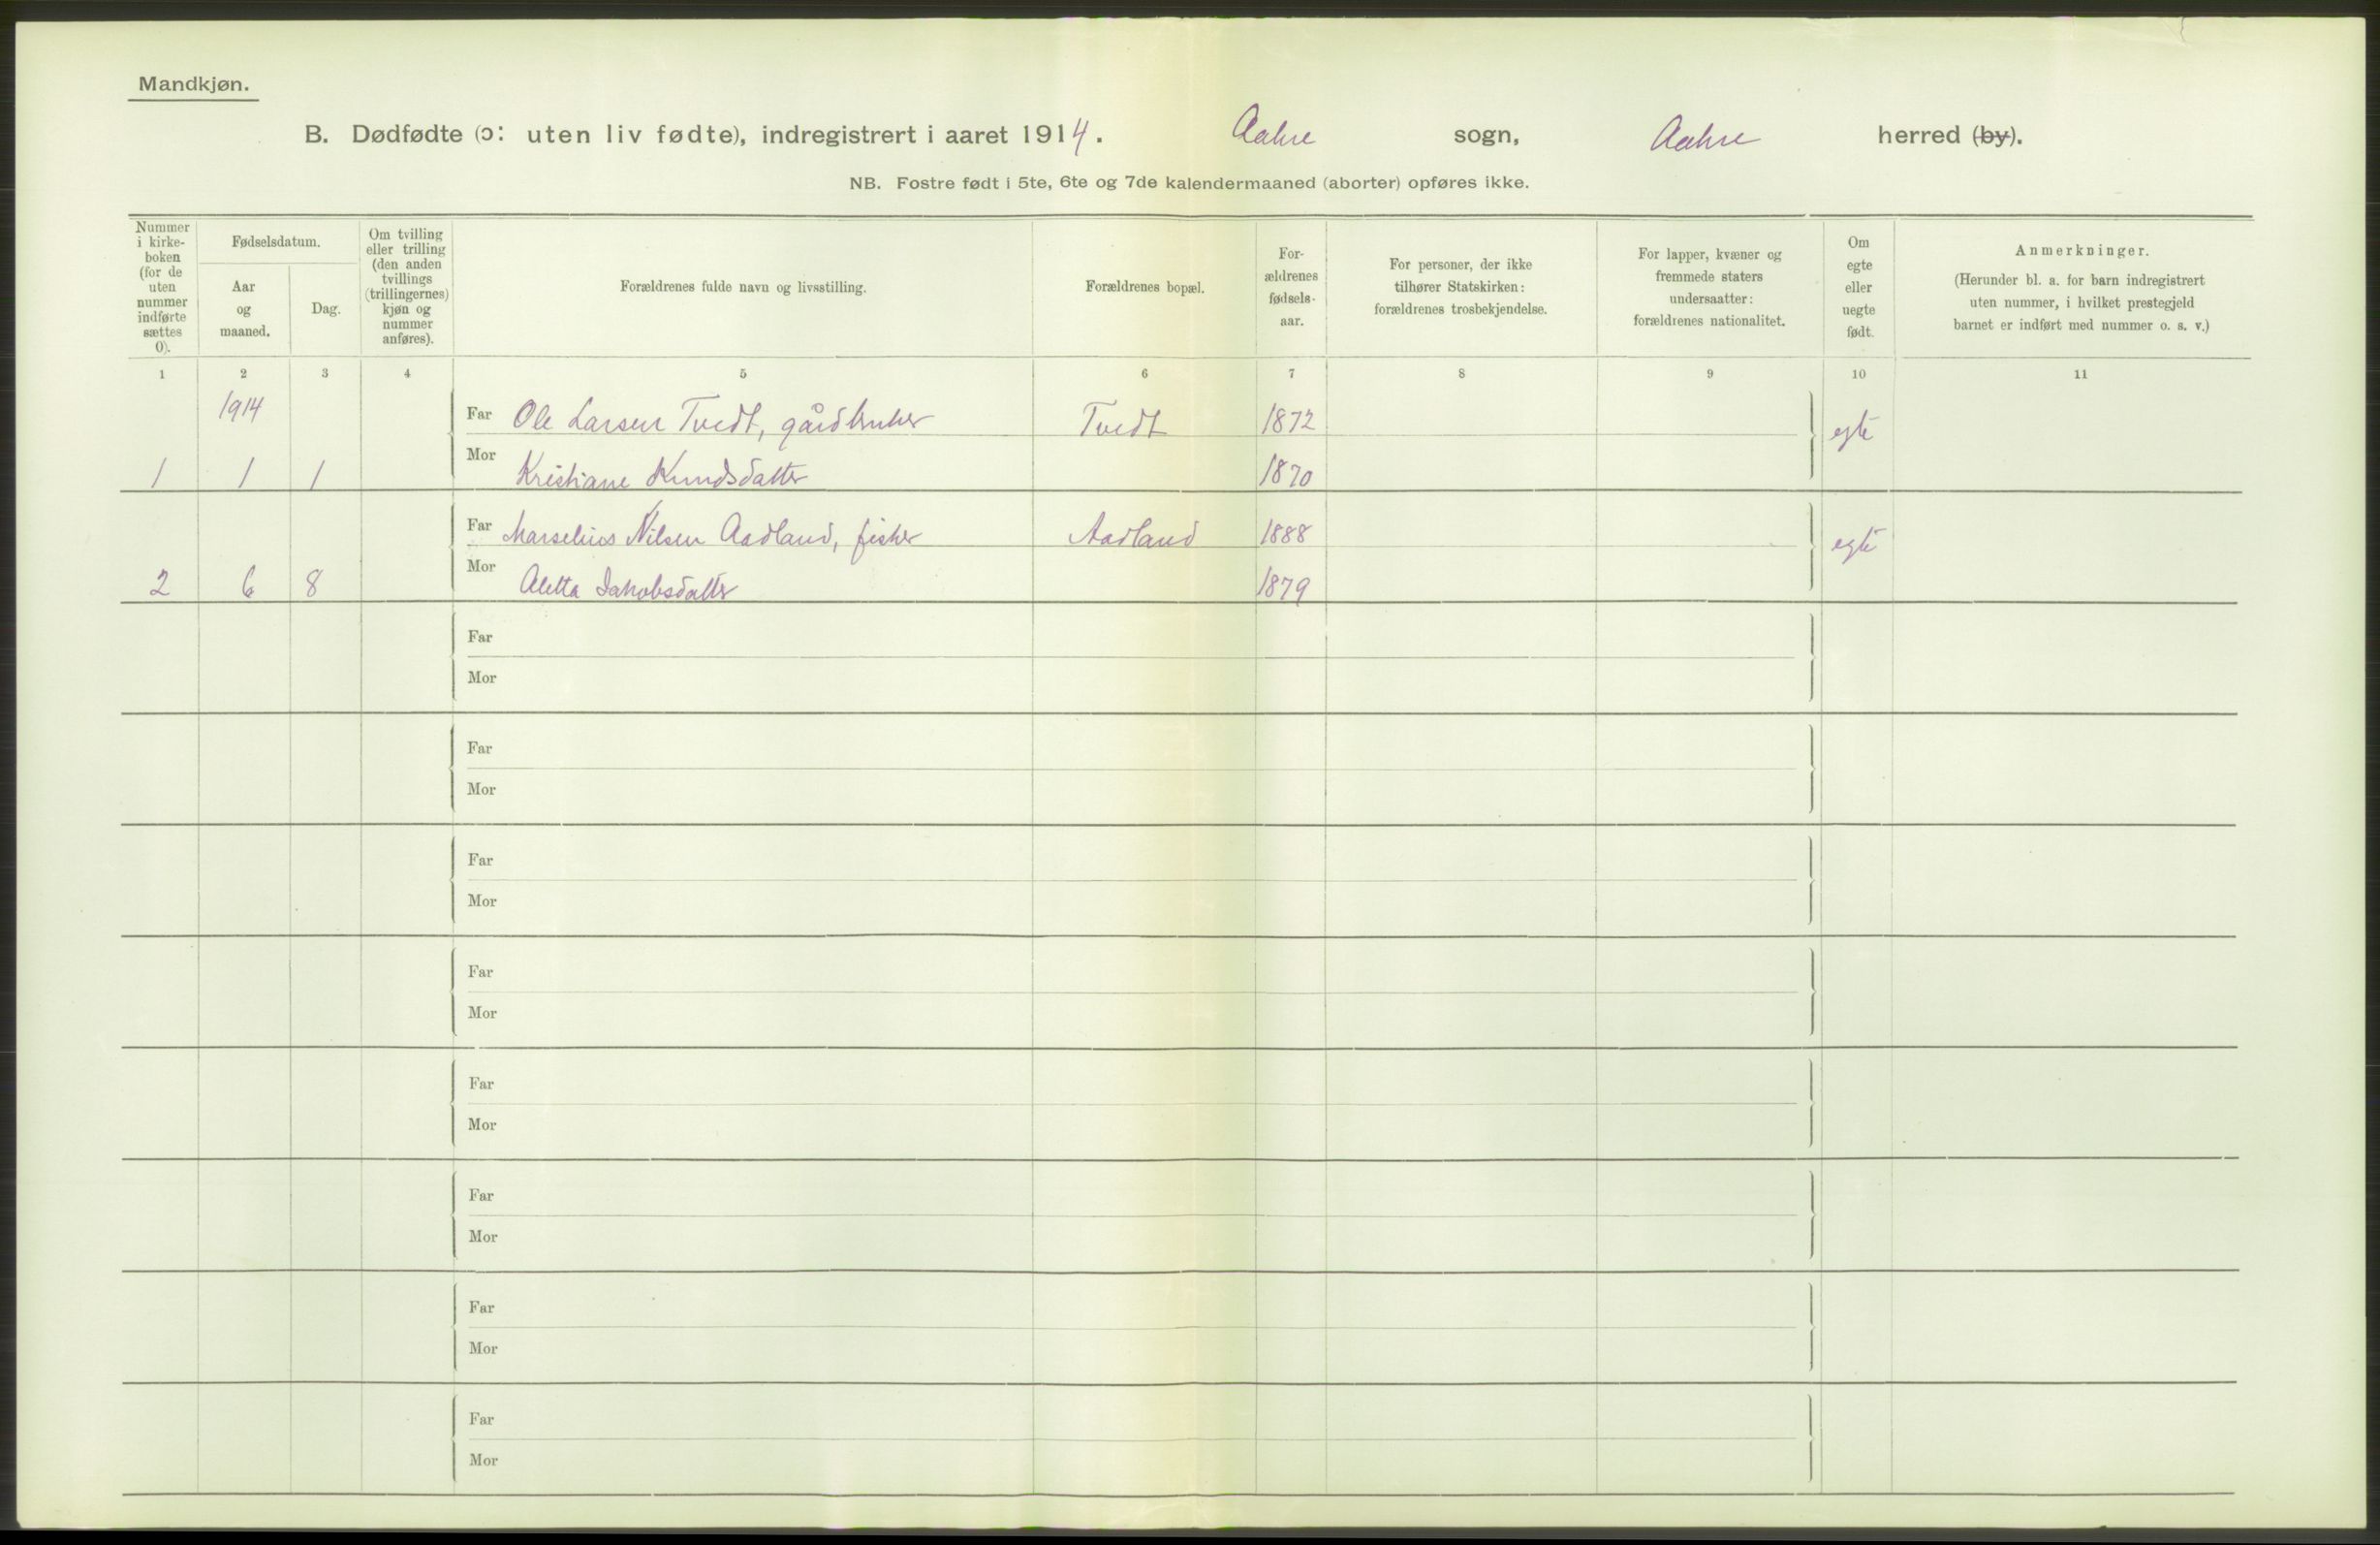 Mandkjøn.
B. Dødfødte (ɔ: uten liv fødte), indregistrert i aaret 1914. Aakre sogn, Aakre herred (by).
NB. Fostre født i 5te, 6te og 7de kalendermaaned (aborter) opføres ikke.
Nummer i kirke-boken (for de uten nummer indførte sættes 0).
Fødselsdatum.
Aar og maaned.
Dag.
Om tvilling eller trilling (den anden tvillings (trillingernes) kjøn og nummer anføres).
Forældrenes fulde navn og livsstilling.
Forældrenes bopæl.
For-ældrenes fødsels-aar.
For personer, der ikke tilhører Statskirken: forældrenes trosbekjendelse.
For lapper, kvæner og fremmede staters undersaatter: forældrenes nationalitet.
Om egte eller uegte født.
Anmerkninger.
(Herunder bl. a. for barn indregistrert uten nummer, i hvilket prestegjeld barnet er indført med nummer o. s. v.)
1 2 3 4 5 6 7 8 9 10 11
1914 Far Ole Larsen Tvedt, gårdbruker Tvedt 1872 egte
1 1 1 Mor Kristiane Knudsdatter 1870
Far Marselius Nilsen Aadland, fisker Aadland 1888 egte
2 6 8 Mor Aletta Jakobsdatter 1879
Far
Mor
Far
Mor
Far
Mor
Far
Mor
Far
Mor
Far
Mor
Far
Mor
Far
Mor